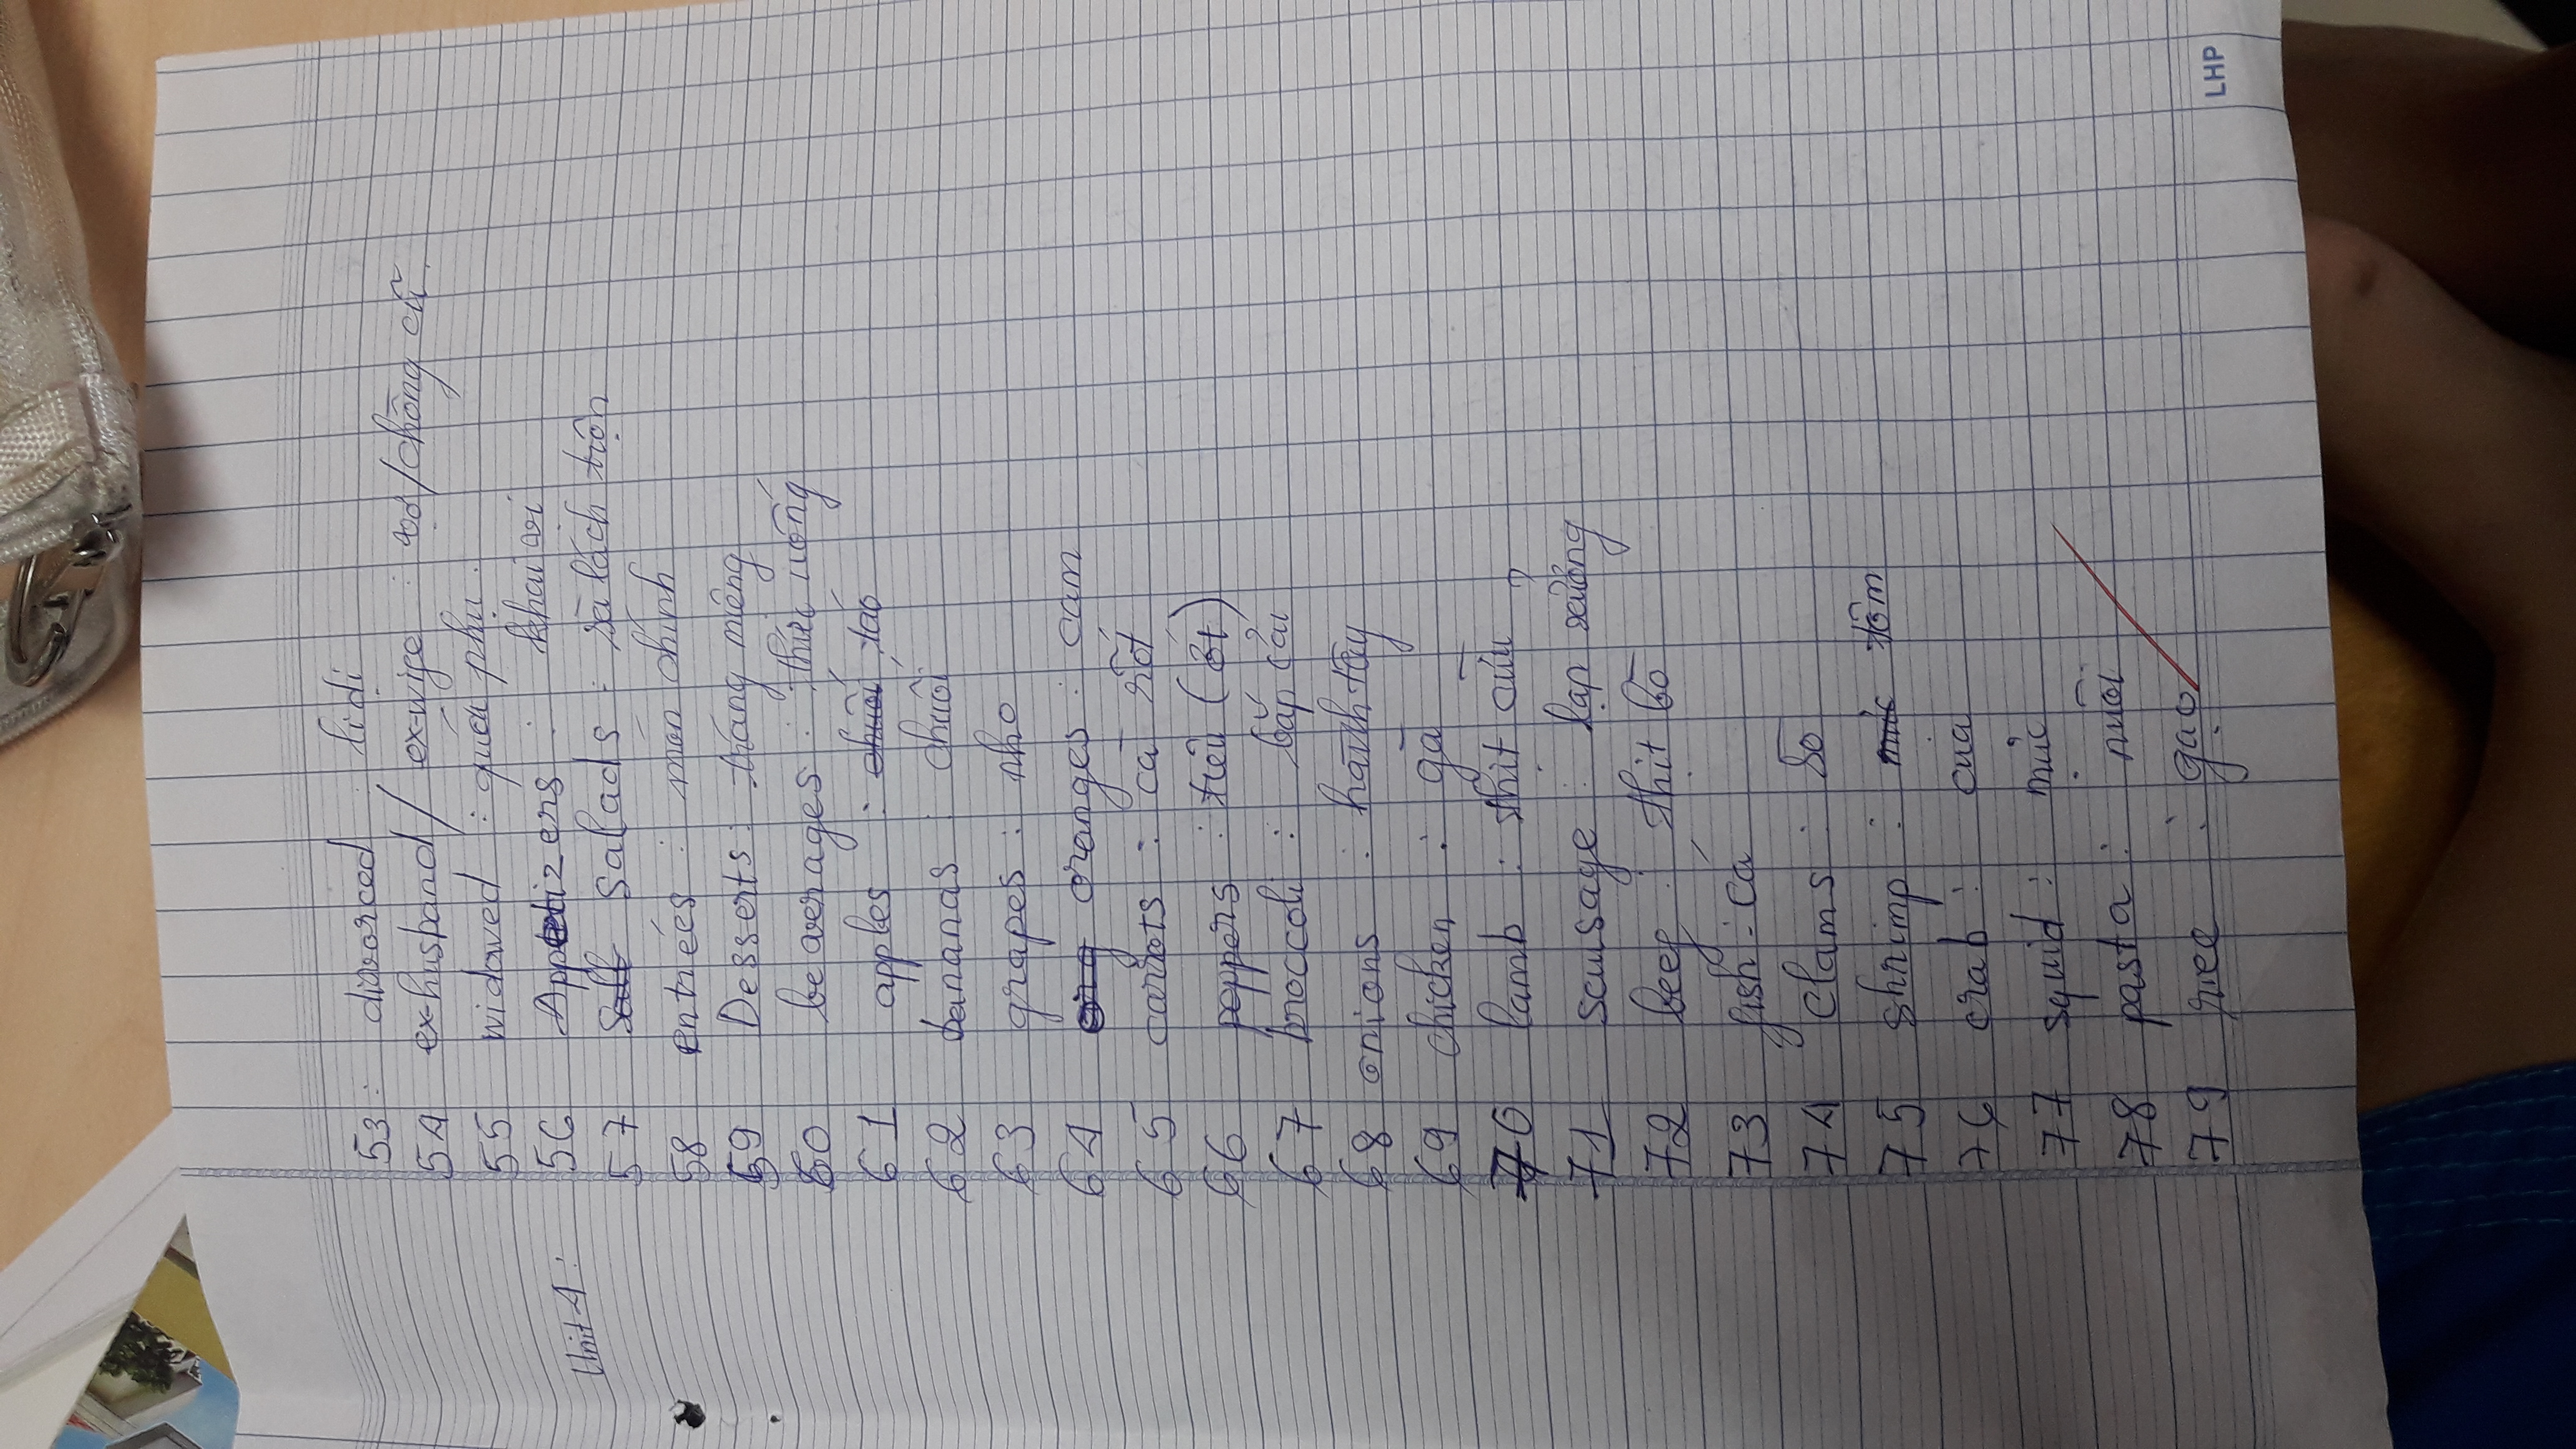 53 : divorced : li dị
54 ex-husband / ex-wife : vợ / chồng cũ
55 widowed : quá phụ.
Unit 4 : 56 Appetizers : khai vị
57 Salads : sà lách trộn
58 entrées : món chính
59 Desserts : tráng miệng
60 beaverages : thức uống
61 apples : chuối táo
62 bananas : chuối
63 grapes : nho
64 org oranges : cam
65 carrots : cà rốt
66 peppers : tiêu (ớt)
67 broccoli : bắp cải
68 onions : hành tây
69 chicken : gà
70 lamb : thịt cừu
71 sausage : lạp xưởng
72 beef : thịt bò
73 fish : cá
74 clams : sò
75 shrimp : mức tôm
76 crab : cua
77 squid : mực
78 pasta : nuôi
79 rice : gạo
LHP